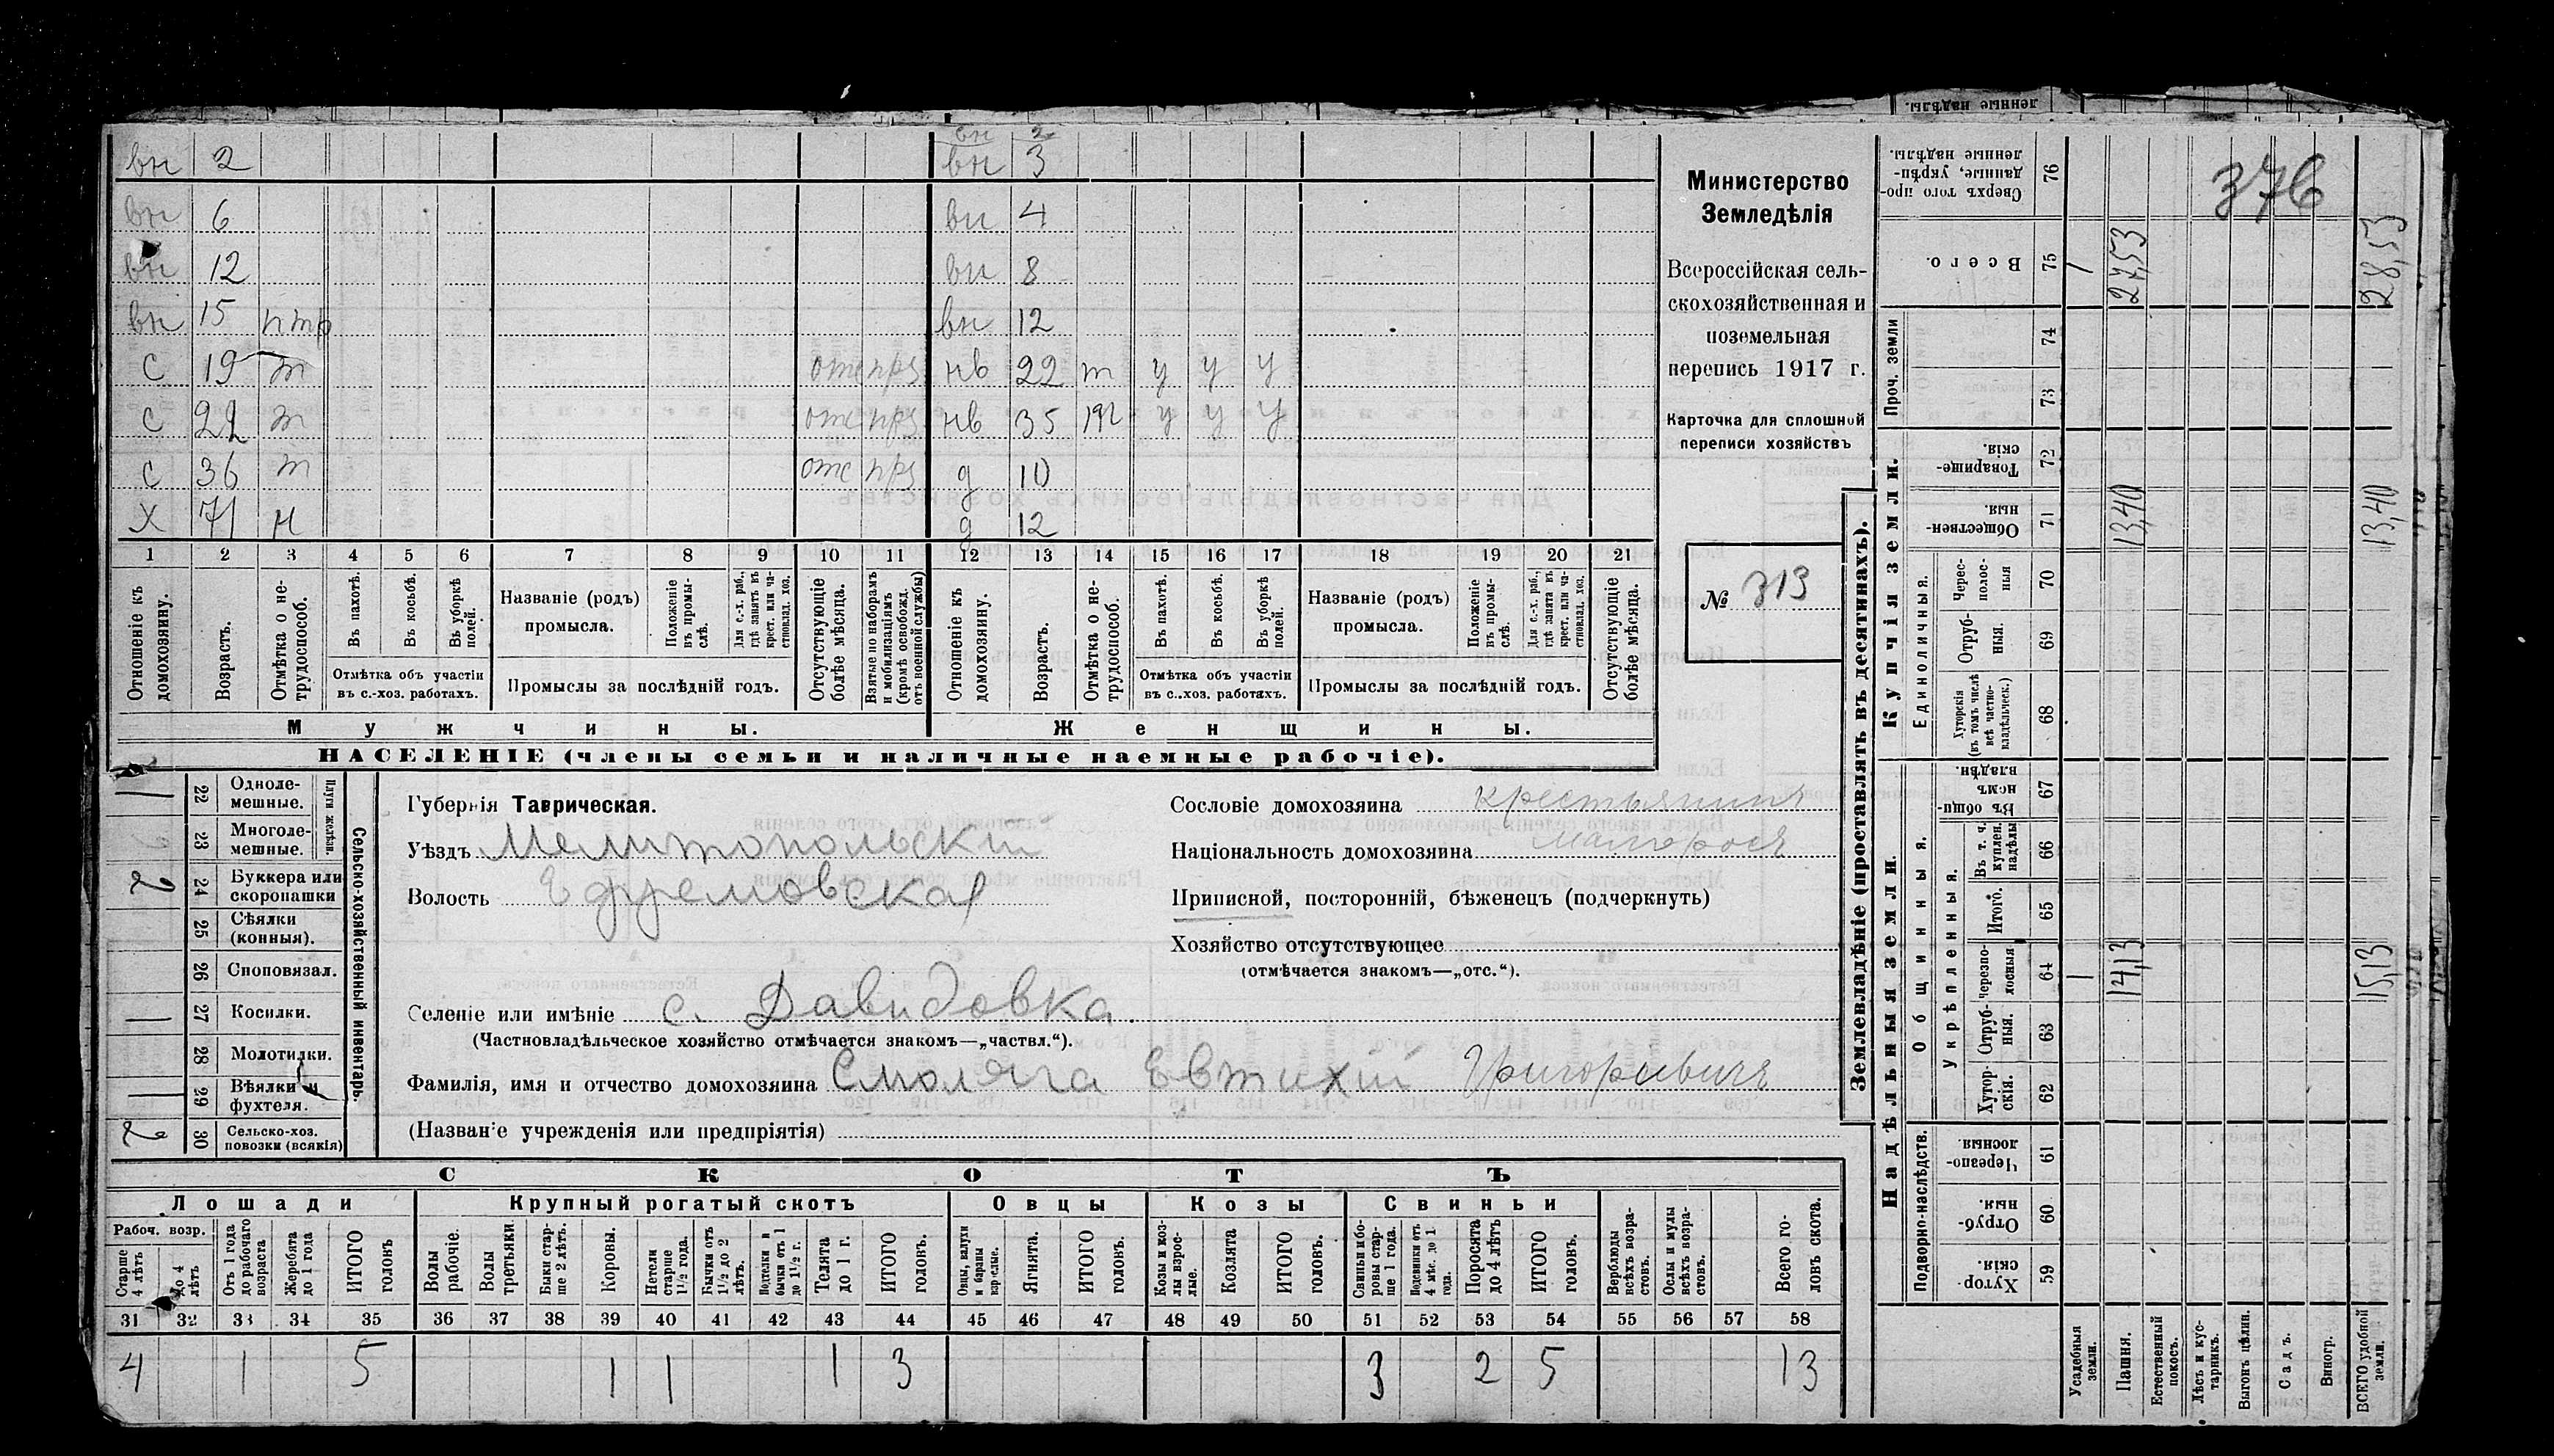 денные надѣлы.
вн 2
вн 2 вн 3
вн 6 вн 4
вн 12 вн 8
вн 15 п тр вн 12
С 19 т отс прз нв 22 т у у у
С 22 т отс прз нв 35 у у у
С 36 т отс прз д 10
Х 71 н д 12
1 2 3 4 5 6 7 8 9 10 11 12 13 14 15 16 17 18 19 20 21
Отношеніе къ домохозяину.
Возрастъ.
Отмѣтка о не-трудоспособ.
Въ пахотѣ.
Въ косьбѣ.
Въ уборкѣ полей.
Отмѣтка объ участіи въ с.-хоз. работахъ.
Названіе (родъ) промысла.
Положеніе въ промы-слѣ.
Для с.-х. раб., гдѣ занятъ въ крест. или ча-стновлад. хоз.
Промыслы за послѣдній годъ.
Отсутствующіе болѣе мѣсяца.
Взятые по наборамъ и мобилизаціямъ (кромѣ освобожд. отъ военной службы)
Отношеніе къ домохозяину.
Возрастъ.
Отмѣтка о не-трудоспособ.
Въ пахотѣ.
Въ косьбѣ.
Въ уборкѣ полей.
Отмѣтка объ участіи въ с.-хоз. работахъ.
Названіе (родъ) промысла.
Положеніе въ промы-слѣ.
Для с.-х. раб., гдѣ занята въ крест. или ча-стновлад. хоз.
Промыслы за послѣдній годъ.
Отсутствующіе болѣе мѣсяца.
Мужчины. Женщины.
НАСЕЛЕНІЕ (члены семьи и наличные наемные рабочіе).
Министерство
Земледѣлія
Всероссійская сель-
скохозяйственная и
поземельная
перепись 1917 г.
Карточка для сплошной
переписи хозяйствъ
№ 313
1 22 Одноле-мешные.
23 Многоле-мешные.
Плуги желѣзн.
2 24 Буккера или скоропашки
25 Сѣялки (конныя).
26 Сноповязал.
1 27 Косилки.
28 Молотилки.
1 29 Вѣялки и фухтеля.
2 30 Сельско-хоз. повозки (всякія)
Сельско-хозяйственный инвентарь.
Губернія Таврическая.
Уѣздъ Мелитопольскій
Волость Ефремовская
Селеніе или имѣніе с. Давидовка.
(Частновладѣльческое хозяйство отмѣчается знакомъ—„частвл.“).
Фамилія, имя и отчество домохозяина Смоляга Евтихій Григорьевичъ
(Названіе учрежденія или предпріятія)
Сословіе домохозяина крестьянинъ
Національность домохозяина малороссъ
Приписной, посторонній, бѣженецъ (подчеркнуть)
Хозяйство отсутствующее
(отмѣчается знакомъ—„отс.“).
СКОТЪ
Лошади Крупный рогатый скотъ Овцы Козы Свиньи
Рабоч. возр.
Старше 4 лѣтъ
до 4 лѣтъ
Отъ 1 года до рабочаго возраста
Жеребята до 1 года
ИТОГО головъ
Волы рабочіе.
Волы третьяки.
Быки стар-ше 2 лѣтъ.
Коровы.
Нетели старше 1½ года.
Бычки отъ 1½ до 2 лѣтъ.
Подтелки и бычки отъ 1 до 1½ г.
Телята до 1 г.
ИТОГО головъ.
Овцы, валухи и бараны взрослые.
Ягнята.
ИТОГО головъ.
Козы и коз-лы взрос-лые.
Козлята
ИТОГО головъ.
Свиньи и бо-ровы стар-ше 1 года.
Подсвинки отъ 4 мѣс. до 1 года.
Поросята до 4 лѣтъ
ИТОГО головъ.
Верблюды всѣхъ возра-стовъ.
Ослы и мулы всѣхъ возра-стовъ.
Всего го-ловъ скота.
31 32 33 34 35 36 37 38 39 40 41 42 43 44 45 46 47 48 49 50 51 52 53 54 55 56 57 58
4 1 5 1 1 1 3 3 2 5 13
Землевладѣніе (проставлять въ десятинахъ).
376
Сверхъ того про-данные, укрѣп-ленные надѣлы. 76
Всего. 75 1 27,53 28,53
Проч. земли 74 73
Купчія земли.
Товарище-скія. 72
Обществен-ныя. 71 13,40 13,40
Единоличныя.
Черес-полос-ныя 70
Отруб-ныя. 69
Хуторскія (въ томъ числѣ всѣ частно-владѣльческ.) 68
Надѣльныя земли.
Общинныя.
Въ общи-немъ владѣн. 67
Укрѣпленныя.
Въ т. ч. куплен. надѣлы 66
Итого. 65
Черезпо-лосныя 64 1 14,13 15,13
Отруб-ныя. 63
Хутор-скія. 62
Подворно-наслѣдств.
Черезпо-лосныя 61
Отруб-ныя. 60
Хутор-скія. 59
Усадебныя земли.
Пашня.
Естественный покосъ.
Лѣсъ и кус-тарникъ.
Выгонъ цѣлин.
Садъ.
Виногр.
ВСЕГО удобной земли.